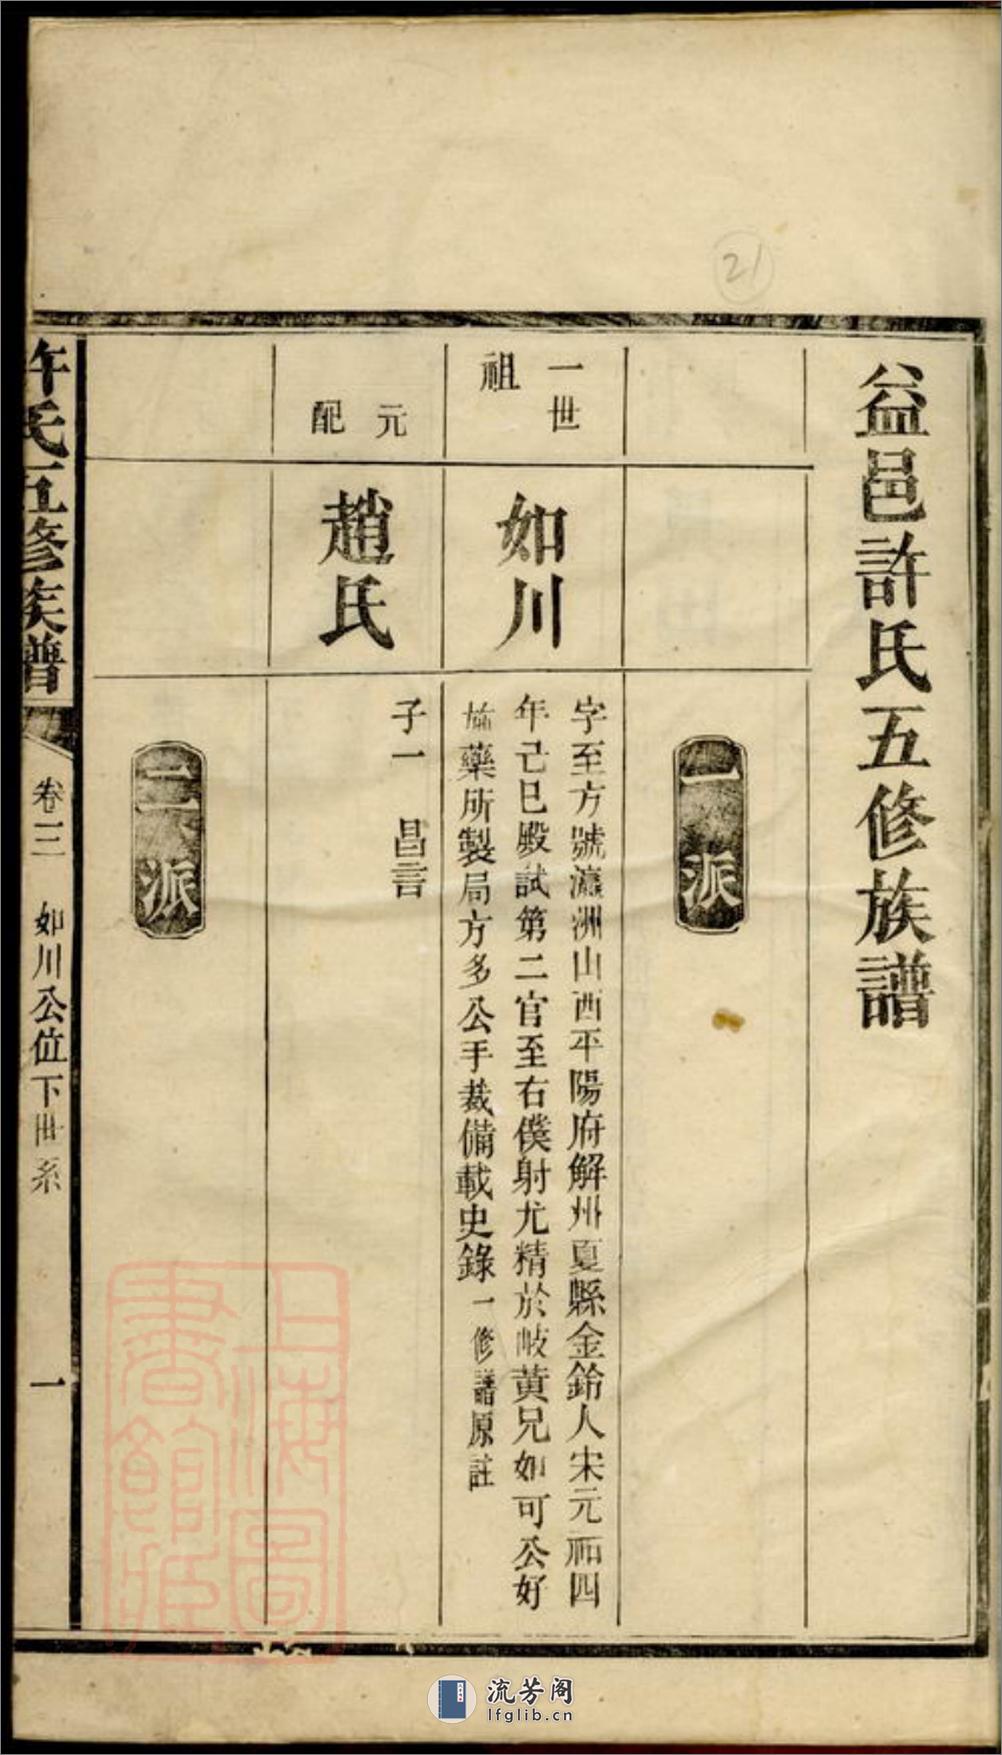 21
益邑許氏五修族譜
一派
一世祖
如川
字至方號瀛洲山西平陽府解州夏縣金鈴人宋元祐四
年己巳殿試第二官至右僕射尤精於岐黄兄如可公好
施藥所製局方多公手裁備載史錄一修譜原註
元配
趙氏
子一 昌言
二派
許氏五修族譜
卷三 如川公位下世系
一
上海圖書館藏
流芳阁
lfglib.cn